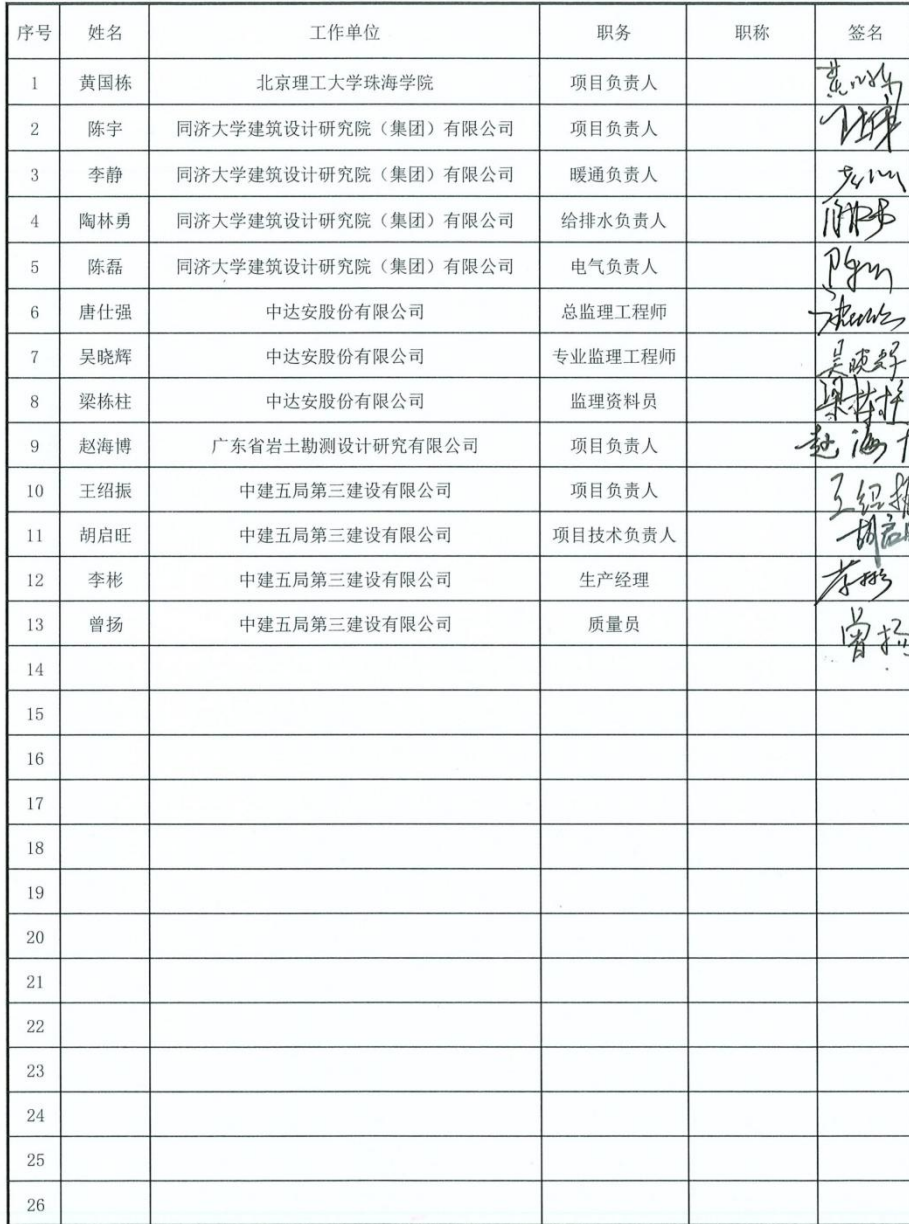 序号 姓名 工作单位 职务 职称 签名
1 黄国栋 北京理工大学珠海学院 项目负责人
2 陈宇 同济大学建筑设计研究院（集团）有限公司 项目负责人
3 李静 同济大学建筑设计研究院（集团）有限公司 暖通负责人
4 陶林勇 同济大学建筑设计研究院（集团）有限公司 给排水负责人
5 陈磊 同济大学建筑设计研究院（集团）有限公司 电气负责人
6 唐仕强 中达安股份有限公司 总监理工程师
7 吴晓辉 中达安股份有限公司 专业监理工程师 吴晓辉
8 梁栋柱 中达安股份有限公司 监理资料员 梁栋柱
9 赵海博 广东省岩土勘测设计研究有限公司 项目负责人 赵海
10 王绍振 中建五局第三建设有限公司 项目负责人 王绍振
11 胡启旺 中建五局第三建设有限公司 项目技术负责人 胡启旺
12 李彬 中建五局第三建设有限公司 生产经理 李彬
13 曾扬 中建五局第三建设有限公司 质量员 曾扬
14
15
16
17
18
19
20
21
22
23
24
25
26